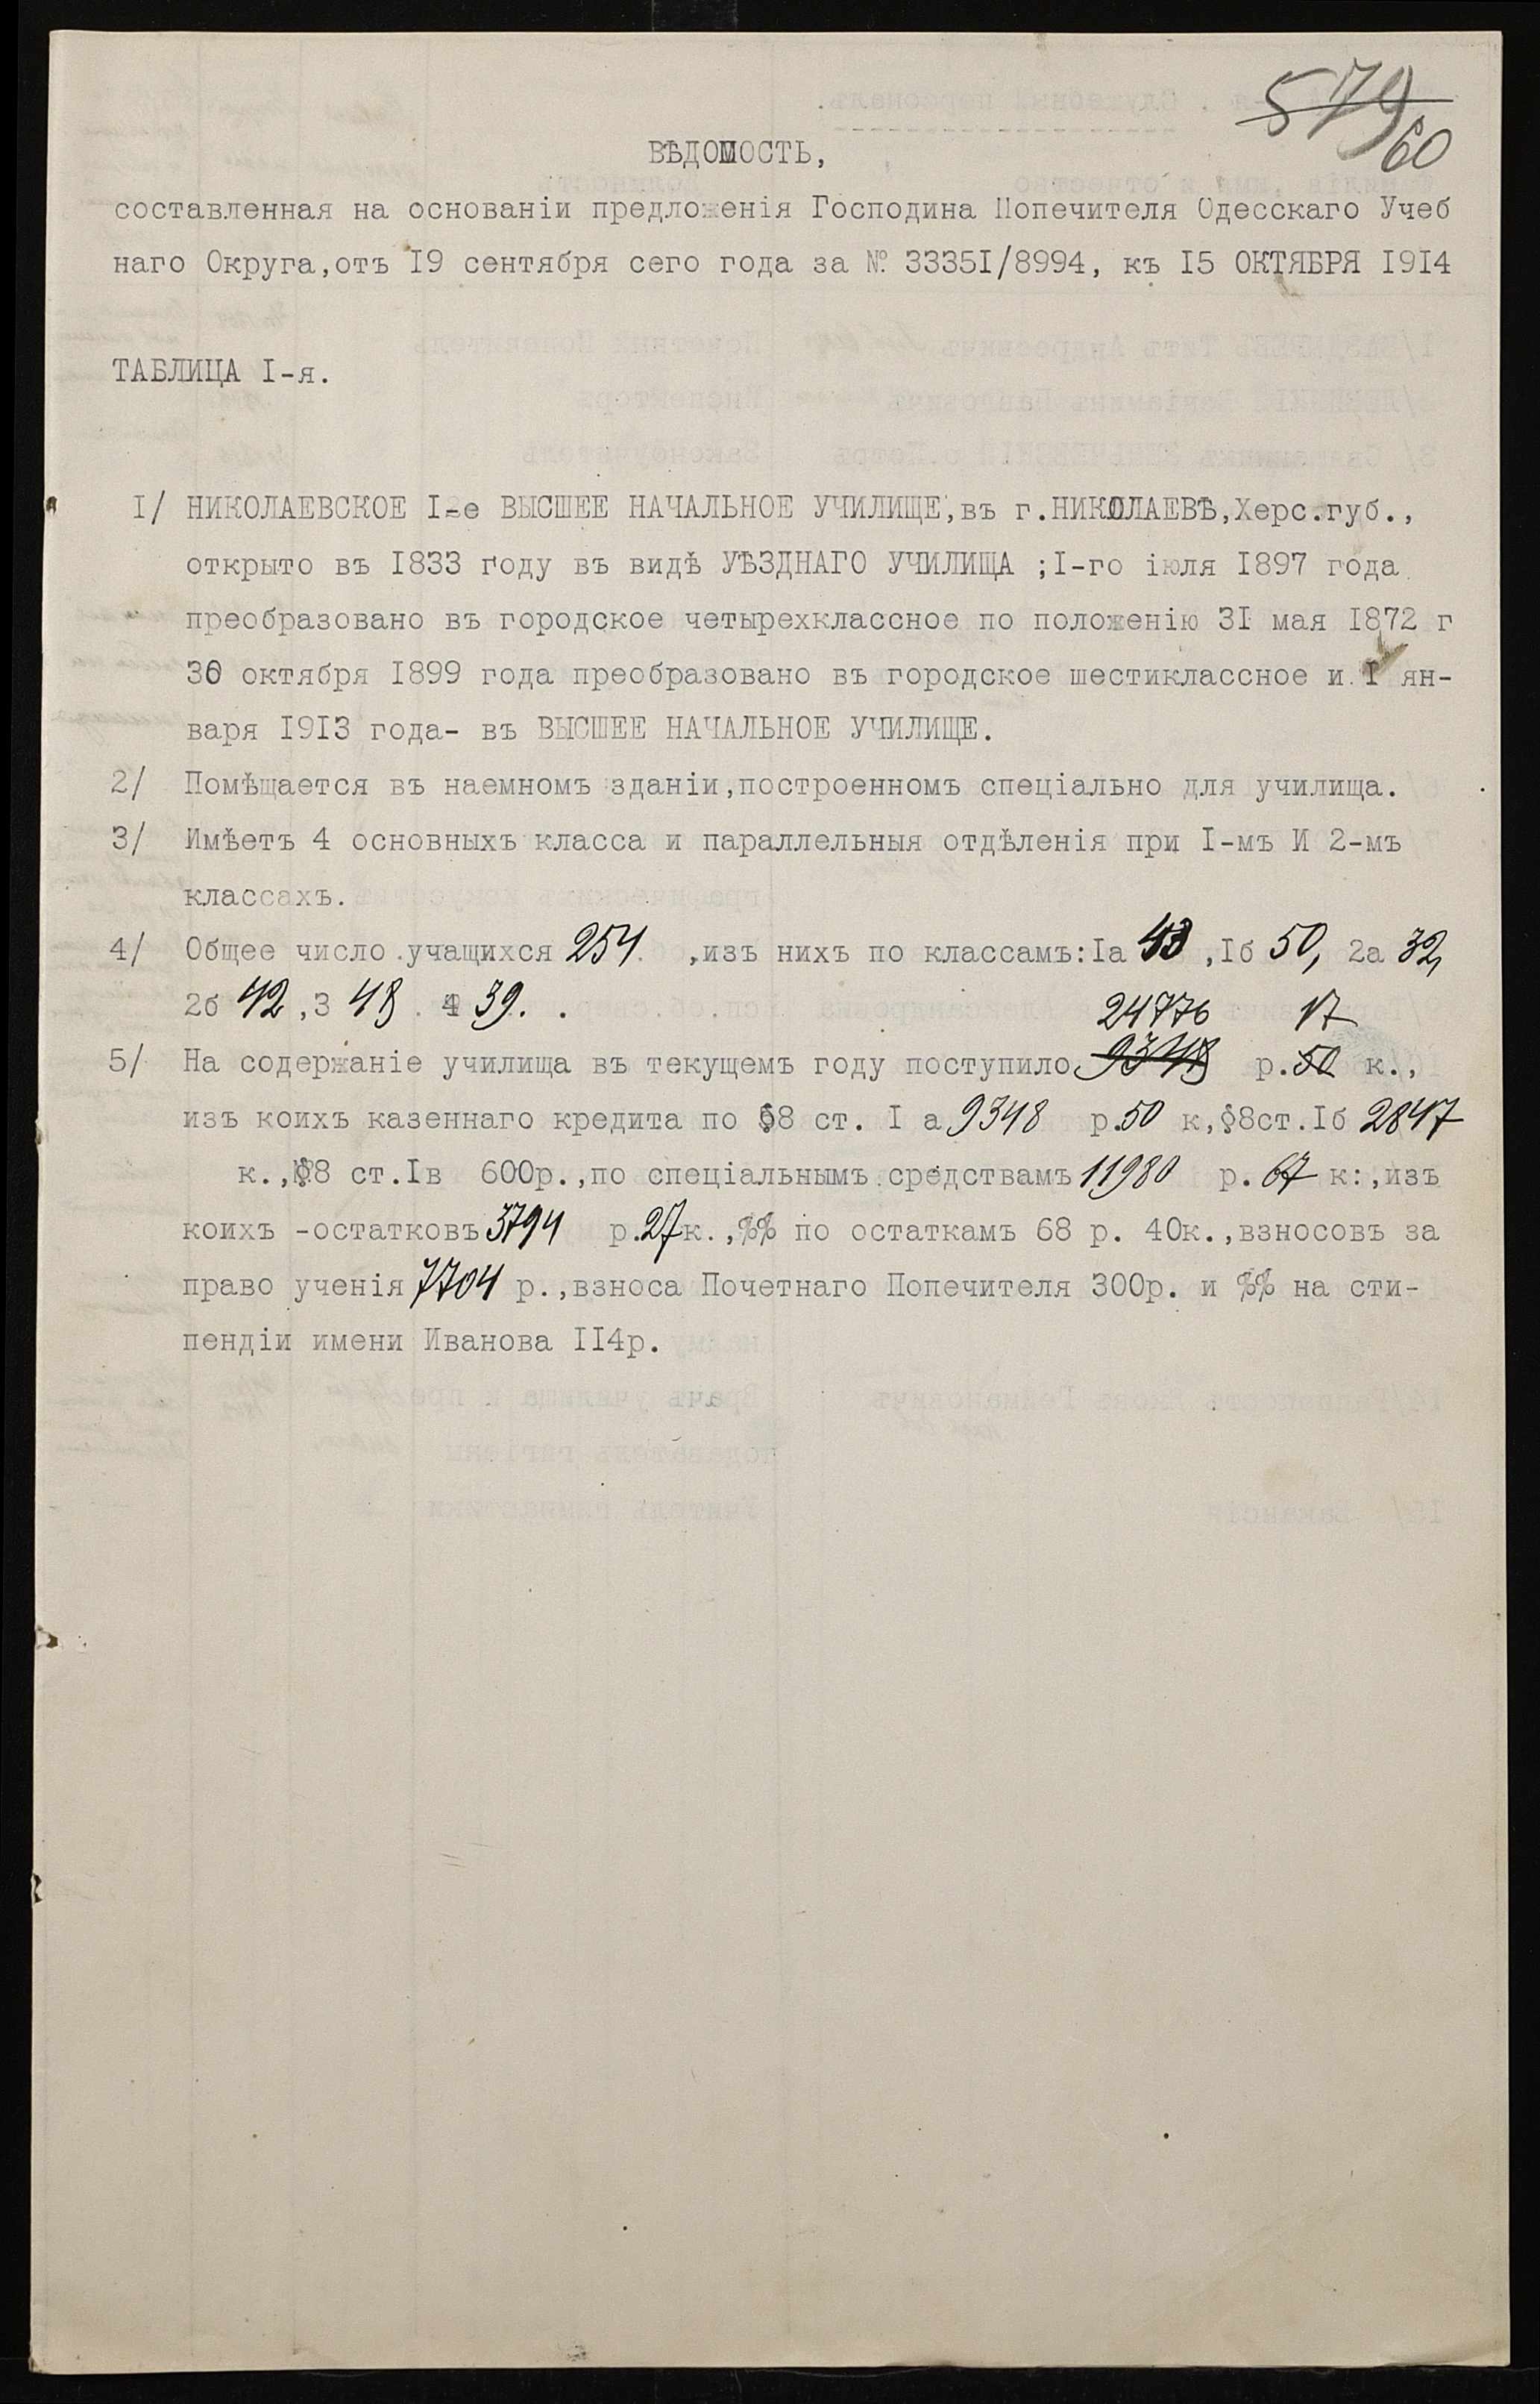 579
60
ВѢДОМОСТЬ,
составленная на основаніи предложенія Господина Попечителя Одесскаго Учеб
наго Округа,отъ I9 сентября сего года за № 3335I/8994, къ I5 ОКТЯБРЯ I9I4
ТАБЛИЦА I-я.
I/ НИКОЛАЕВСКОЕ I-е ВЫСШЕЕ НАЧАЛЬНОЕ УЧИЛИЩЕ,въ г.НИКОЛАЕВѢ,Херс.губ.,
открыто въ I833 году въ видѣ УѢЗДНАГО УЧИЛИЩА ;I-го іюля I897 года
преобразовано въ городское четырехклассное по положенію 3I мая I872 г
30 октября I899 года преобразовано въ городское шестиклассное и I ян-
варя I9I3 года- въ ВЫСШЕЕ НАЧАЛЬНОЕ УЧИЛИЩЕ.
2/ Помѣщается въ наемномъ зданіи,построенномъ спеціально для училища.
3/ Имѣетъ 4 основныхъ класса и параллельныя отдѣленія при I-мъ И 2-мъ
классахъ.
4/ Общее число учащихся 254 ,изъ нихъ по классамъ:Iа 43 ,Iб 50, 2а 32,
2б 42 ,3 48 4 39. .
24776 17
5/ На содержаніе училища въ текущемъ году поступило 9348 р.50 к.,
изъ коихъ казеннаго кредита по §8 ст. I а 9348 р.50 к,§8ст.Iб 2847
к.,§8 ст.Iв 600р.,по спеціальнымъ средствамъ 11980 р. 67 к:,изъ
коихъ -остатковъ 3794 р.27к.,%% по остаткамъ 68 р. 40к.,взносовъ за
право ученія 7704 р.,взноса Почетнаго Попечителя 300р. и %% на сти-
пендіи имени Иванова II4р.